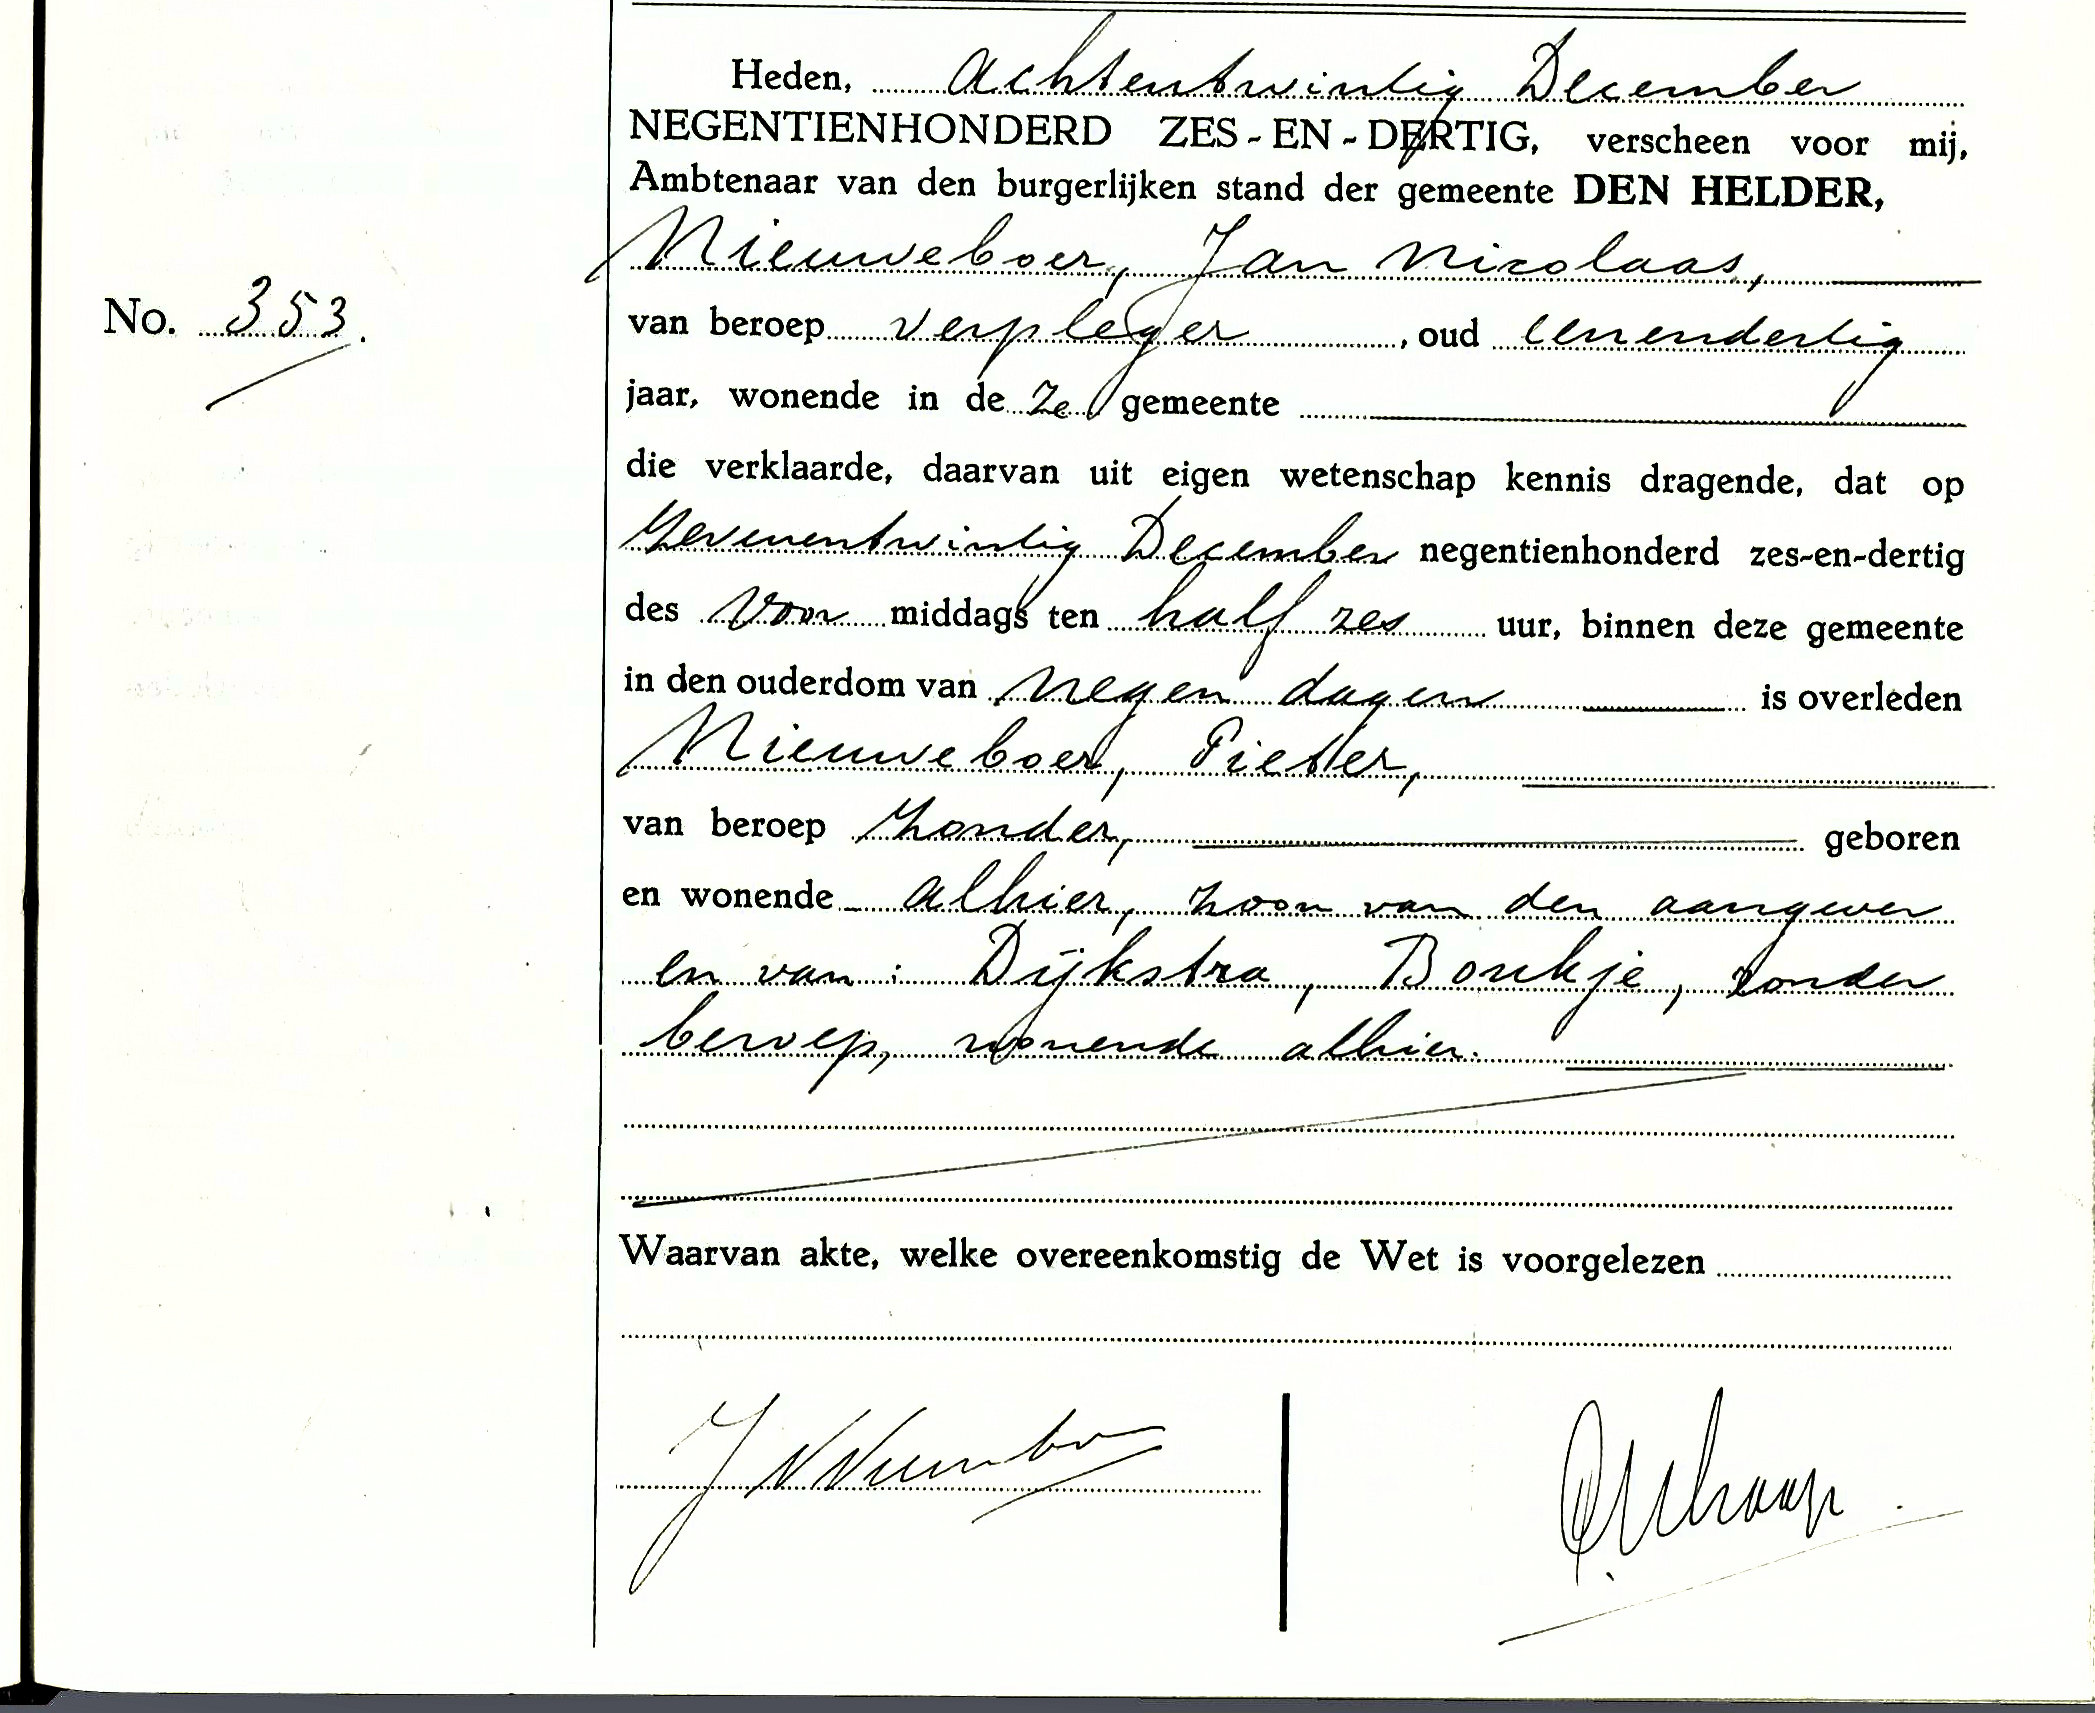 Heden, Achtentwintig December
NEGENTIENHONDERD ZES-EN-DERTIG, verscheen voor mij,
Ambtenaar van den burgerlijken stand der gemeente DEN HELDER,
Nieuweboer, Jan Nicolaas,
No. 353.
van beroep verpleger, oud eenendertig
jaar, wonende in deze gemeente
die verklaarde, daarvan uit eigen wetenschap kennis dragende, dat op
Zevenentwintig December negentienhonderd zes-en-dertig
des Voor middags ten half zes uur, binnen deze gemeente
in den ouderdom van negen dagen is overleden
Nieuweboer, Pieter,
van beroep zonder, geboren
en wonende alhier, zoon van den aangever
en van: Dijkstra, Boukje, zonder
beroep, wonende alhier.
Waarvan akte, welke overeenkomstig de Wet is voorgelezen